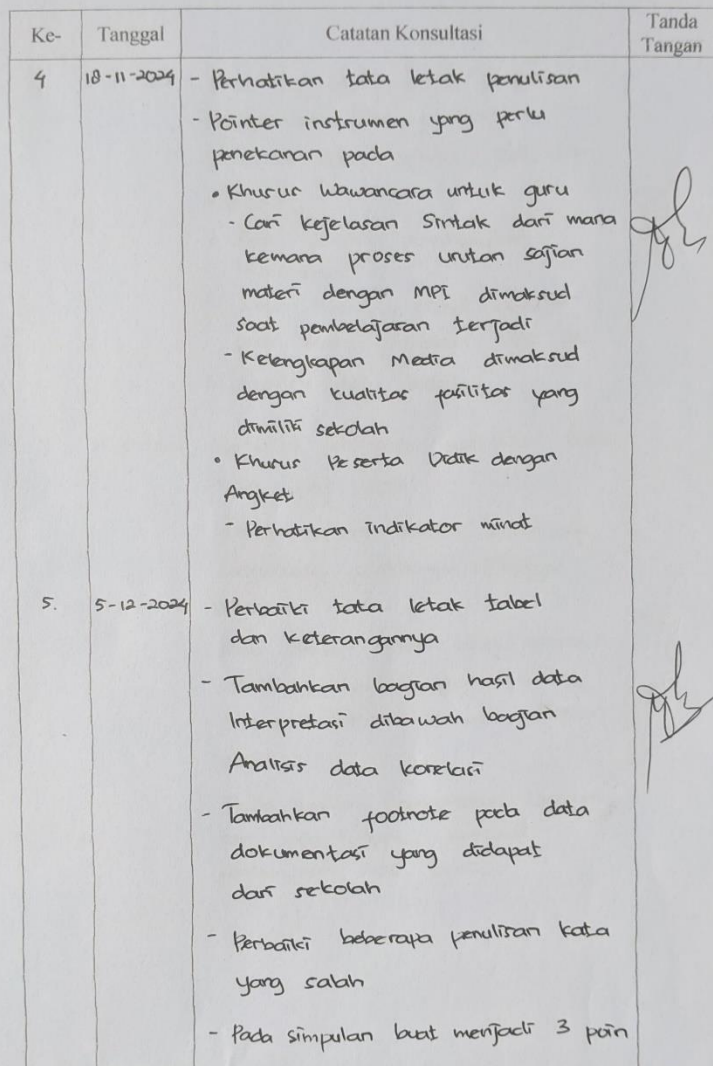 Ke- Tanggal Catatan Konsultasi Tanda Tangan
4 18-11-2024 - Perhatikan tata letak penulisan
- Pointer instrumen yang perlu
penekanan pada
• Khusus Wawancara untuk guru
- Cari kejelasan Sintak dari mana
kemana proses urutan sajian
materi dengan MPI dimaksud
saat pembelajaran terjadi
- Kelengkapan Media dimaksud
dengan kualitas fasilitas yang
dimiliki sekolah
• Khusus Peserta Didik dengan
Angket
- Perhatikan indikator minat
5. 5-12-2024 - Perbaiki tata letak tabel
dan keterangannya
- Tambahkan bagian hasil data
Interpretasi dibawah bagian
Analisis data korelasi
- Tambahkan footnote pada data
dokumentasi yang didapat
dari sekolah
- Perbaiki beberapa penulisan kata
yang salah
- Pada simpulan buat menjadi 3 poin